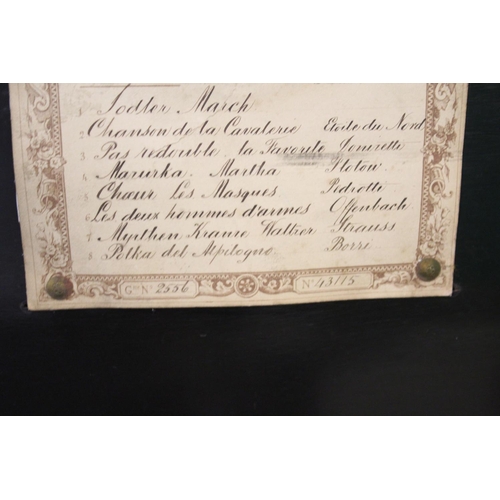 1 Jodler March
2 Chanson de la Cavalerie Etoile du Nord
3 Pas redouble la Favorite
4 Mazurka. Martha Flotow
5 Chœur Les Masques Pedrotti
6 Les deux hommes d'armes Offenbach
7 Myrthen Kranse Waltzer Strauss
8 Polka del Borri
Gme No 2556 No 43175